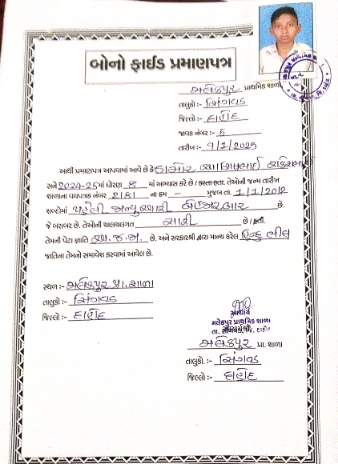 બોનો ફાઈડ પ્રમાણપત્ર
મલેકપુર પ્રાથમિક શાળા
તાલુકો:- સિંગવડ
જિલ્લો:- દાહોદ
જાવક નંબર:- ૬
તારીખ:-
આથી પ્રમાણપત્ર આપવામાં આવે છે કે
સને 2024-25માં ધોરણ 8 માં અભ્યાસ કરે છે / કરતા હતા. તેઓની જન્મ તારીખ
શાળાના વયપત્રક નંબર 2181 ના ક્રમ - મુજબ તા. 1/1/2012
શબ્દોમાં પહેલી જાન્યુઆરી બે હજાર બાર છે.
જે બરાબર છે. તેઓની ચાલચલગત સારી છે / હતી
તેમની પેટા જ્ઞાતિ છે. અને સરકારશ્રી દ્વારા માન્ય કરેલ હિન્દુ ભીલ
જાતિના તેમનો સમાવેશ કરવામાં આવેલ છે.
સ્થળ:- મલેકપુર પ્રા. શાળા
તાલુકો:- સિંગવડ
જિલ્લો:- દાહોદ
આચાર્ય
મલેકપુર પ્રાથમિક શાળા
મલેકપુર પ્રા. શાળા
તાલુકો:- સિંગવડ
જિલ્લો:- દાહોદ